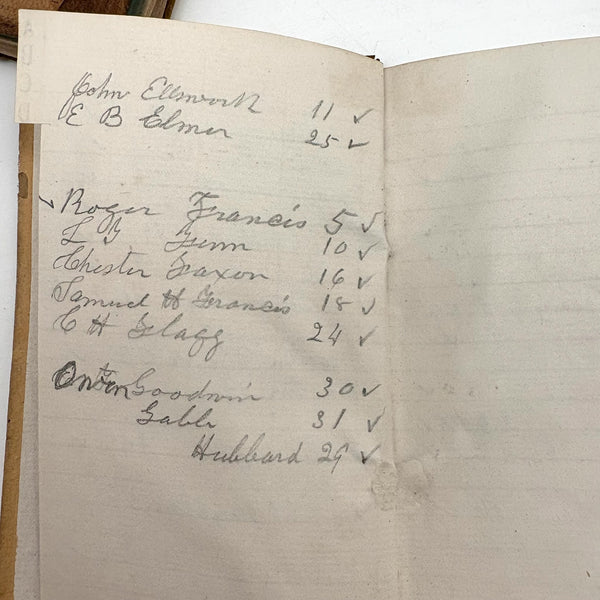 John Ellsworth 11 ✓
E B Elmer 25 ✓
Roger Francis 5 ✓
L B 10 ✓
Chester Faxon 16 ✓
Samuel H Francis 18 ✓
C H Flagg 24 ✓
Goodwin 30 ✓
31 ✓
Hubbard 29 ✓